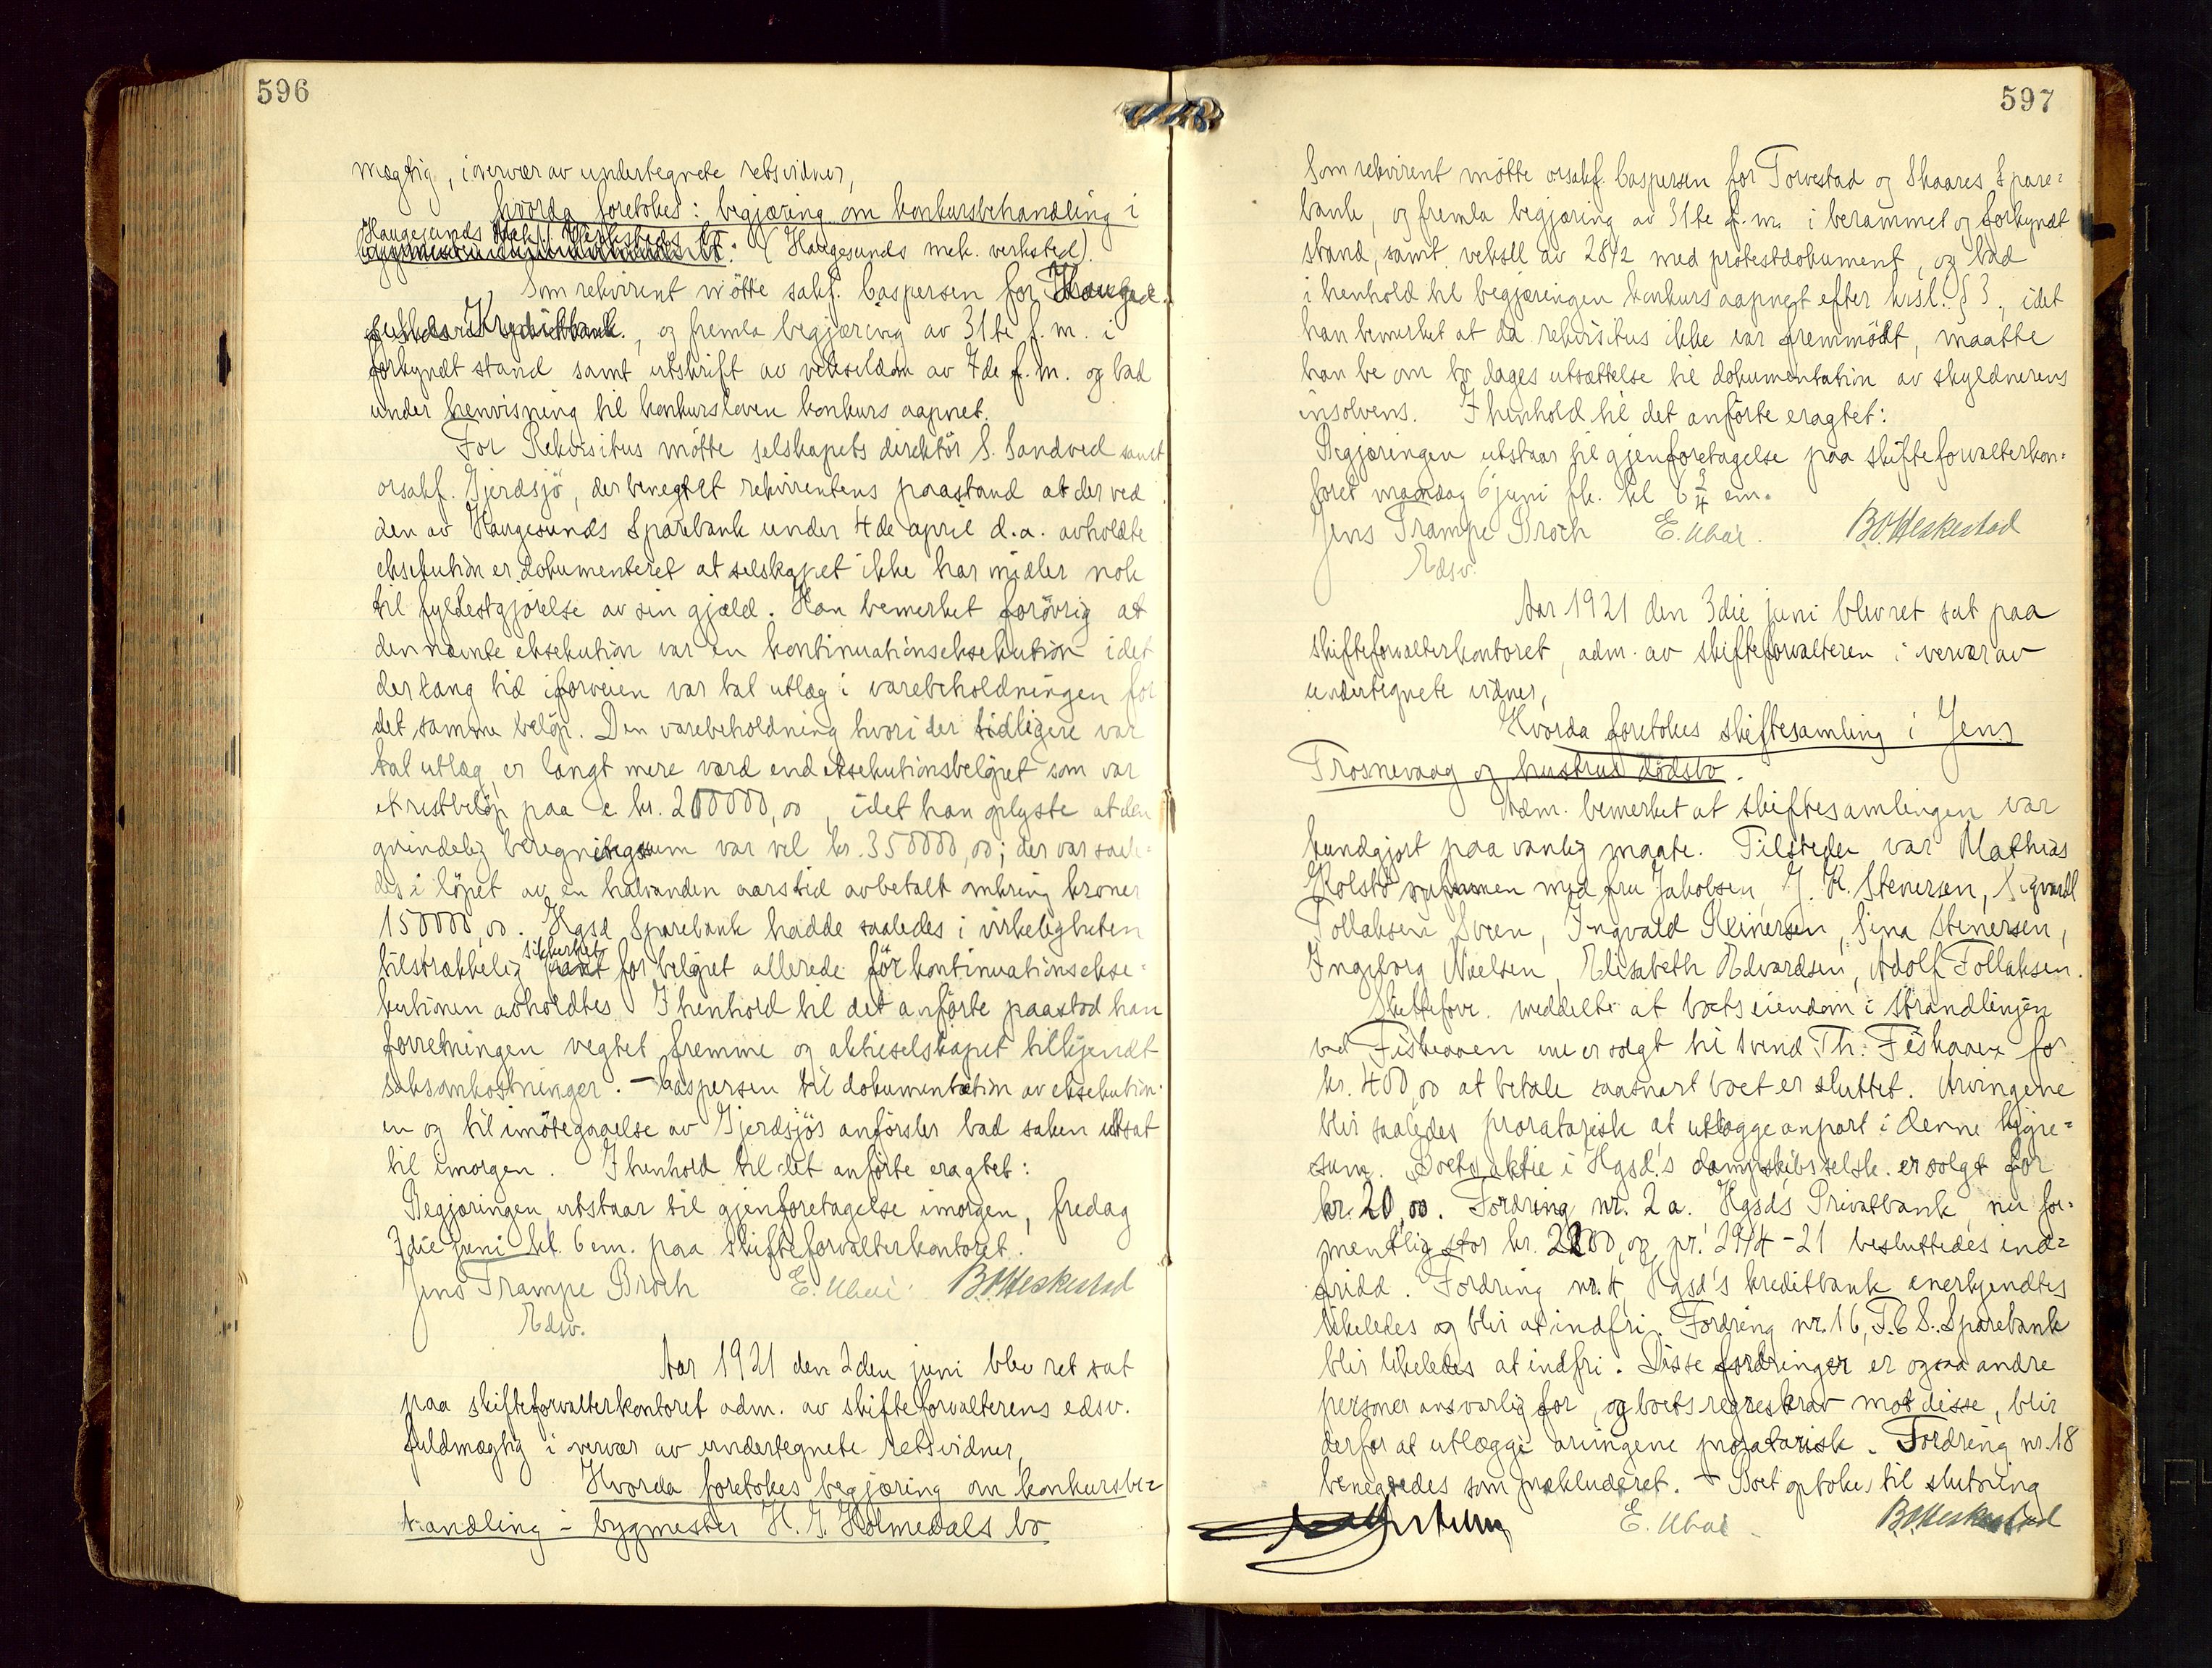 596
mægtig, i overvær av undertegnete retsvidner,
hvorda foretokes: begjæring om konkursbehandling i
Haugesunds Mek. Verksteds bo: (Haugesunds mek. verksted).
Som rekvirent mötte sakf. Caspersen for Hauge
sunds Kreditbank, og fremla begjæring av 31te f.m. i
forkyndt stand samt utskrift av vekseldom av 7de f.m. og bad
under henvisning til konkursloven konkurs aapnet.
For Rekvisitus mötte selskapets direktör S. Sandved samt
orsakf. Gjerdsjö, der benegtet rekvirentens paastand at der ved
den av Haugesunds Sparebank under 4de april d.a. avholdte
eksekution er dokumenteret at selskapet ikke har midler nok
til fyldestgjörelse av sin gjæld. Han bemerket forövrig at
den nævnte eksekution var en kontinuationseksekution idet
der lang tid iforveien var tat utlæg i varebeholdningen for
det samme belöp. Den varebeholdning hvori der tidligere var
tat utlæg, er langt mere værd end eksekutionsbelöpet som var
et restbelöp paa c kr. 200000,00, idet han oplyste at den
grindelig beregningssum var vel kr. 350000,00; der var saale-
des i löpet av en halvanden aarstid avbetalt omkring kroner
150000,00. Hgsd Sparebank hadde saaledes i virkeligheten
tilstrækkelig sikkerhet for belöpet allerede för kontinuationsekse-
kutionen avholdtes. I henhold til det anförte paastod han
forretningen negtet fremme og aktieselskapet tilkjendt
saksomkostninger. — Caspersen til dokumentation av eksekution-
en og til imötegaaelse av Gjerdsjös anförsler bad saken utsat
til imorgen. I henhold til det anförte eragtet:
Begjæringen utstaar til gjenforetagelse imorgen, fredag
3die juni kl. 6 em. paa skifteforvalterkontoret.
Jens Trampe Broch E. B.O. Heskestad
Edsv.
Aar 1921 den 2den juni blev ret sat
paa skifteforvalterkontoret adm. av skifteforvalterens edsv.
fuldmægtig i overvær av undertegnete retsvidner,
Hvorda foretokes begjæring om konkursbe-
handling i bygmester H. J. Holmedals bo
597
Som rekvirent mötte orsakf. Caspersen for Torvestad og Skaares Spare-
bank, og fremla begjæring av 31te f.m. i berammet og forkyndt
stand, samt veksel av 28/2 med protestdokument, og bad
i henhold til begjæringen konkurs aapnet efter krsl. § 3, idet
han bemerket at da rekvisitus ikke var fremmödt, maatte
han be om to dages utsættelse til dokumentation av skyldnerens
insolvens. I henhold til det anförte eragtet:
Begjæringen utstaar til gjenforetagelse paa skifteforvalterkon-
toret mandag 6 juni fk. kl 6 3/4 em.
Jens Trampe Broch E. B.O. Heskestad
Edsv.
Aar 1921 den 3die juni blev ret sat paa
skifteforvalterkontoret, adm. av skifteforvalteren i overvær av
undertegnete vidner,
Hvorda foretokes skiftesamling i Jens
Trosnevaag og hustrus dödsbo.
Adm. bemerket at skiftesamlingen var
kundgjort paa vanlig maate. Tilstede var Mathias
Kolstö sammen med fru Jakobsen, J. K. Stenersen, Sigvald
Tollaksen Sveen, Ingvald Reinersen, Sina Stenersen,
Ingeborg Nielsen, Elisabeth Edvardsen, Adolf Tollaksen.
Skifteforv. meddelte at boets eiendom i Strandlinjen
ved Fiskaaen nu er solgt til Svend Th. Fiskaaen for
kr. 400,00 at betale saasnart boet er sluttet. Arvingene
blir saaledes proratarisk at utlægge anpart i denne kjöpe-
sum. Boets aktie i Hgsd.'s dampskibsselsk. er solgt for
kr. 20,00. Fordring nr. 2 a. Hgsds Privatbank, nu for-
mentlig stor kr. 2200,00 pr. 29/4-21 besluttedes ind-
fridd. Fordring nr. 4, Hgsd's kreditbank anerkjendtes
likeledes og blir at indfri. Fordring nr. 16, T. & S. Sparebank
blir likeledes at indfri. Disse fordringer er ogsaa andre
personer ansvarlig for, og boets regreskrav mot disse, blir
derfor at utlægge arvingene proratarisk. Fordring nr. 18
benegtedes som prækluderet. — Boet optokes til slutning
E. B.O. Heskestad